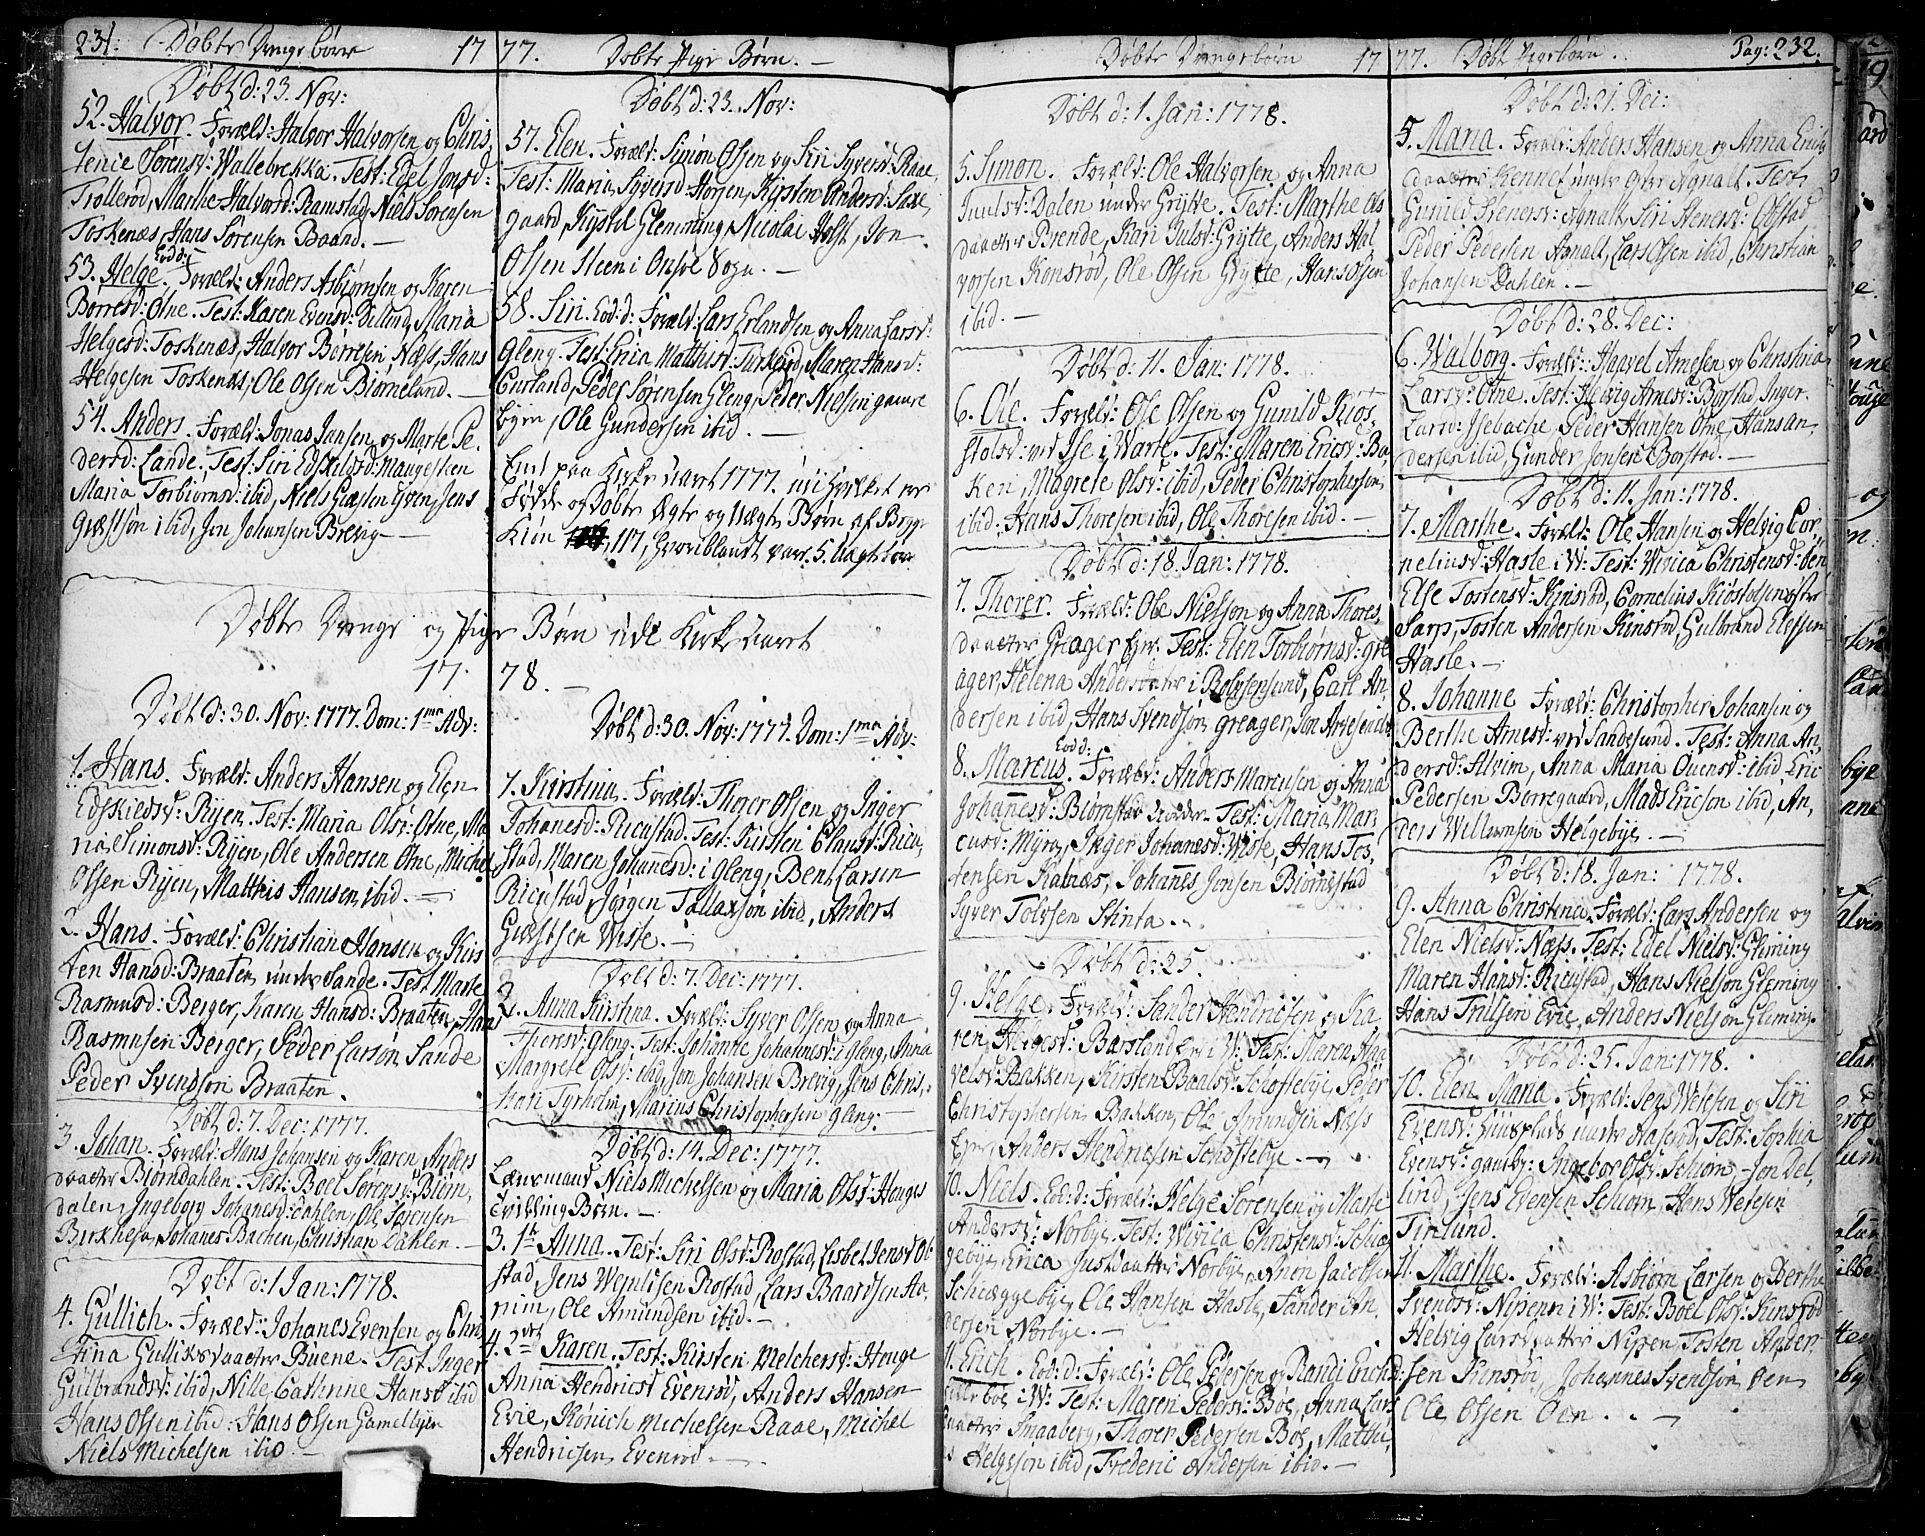 231. Døbte Drenge børn 17
Døbt d: 23. Nov:
52. Halvor. Foræld: Halvor Halvorsen og Chris
tence Sørensd: Wallebrekka. Test: Edel Jonsd:
Trollerød, Marthe Halvorsd: Ramstad, Niels Sørensen
Toskenæs, Hans Sørensen Baand. —
Eod: d:
53. Helge. Foræld: Anders Asbiørnsen og Karen
Børresd: Otne. Test: Karen Evensd: Maria
Helgesd: Toskenæs, Halvor Børresen Næss, Hans
Helgesen Toskenæs, Ole Olsen Biørneland. —
54. Anders. Foræld: Jonas Jansen og Marte Pe,
dersd: Lande. Test: Siri Edskildsd: Maugesteen
Maria Torbiørnsd: ibid, Niels Giæsten Gven, Jens
Giæstsøn ibid, Jon Johansen Brevig —
Døbte Drenge
17.
Døbt d: 30. Nov: 1777. Dom: 1ma Adv:
1. Hans. Foræld: Anders Hansen og Elen
Edskieldsd: Ryen. Test: Maria Olsd: Otne, Ma
ria Simonsd: Ryen, Ole Andersen Otne, Michel
Olsen Ryen, Matthis Hansen ibid. —
2. Hans. Foræld: Christian Hansen og Kirs
ten Hansd: Braaten under Sande. Test: Marte
Rasmusd: Berger, Karen Hansd: Braaten, Hans
Rasmusen Berger, Peder Larsøn Sande
Peder Svendsøn Braaten.
Døbt d: 7. Dec: 1777.
3. Johan. Foræld: Hans Johansen og Karen Anders
daatter Biørndahlen. Test: Boel Sørensd: Biørn,
dalen, Ingeborg Johanesd: Dahlen, Ole Sørensen
Birkhesa, Johanes Bachen, Christian Dahlen. —
Døbt d: 1 Jan: 1778.
4. Gullich. Foræld: Johanes Evensen og Chris
tina Gulliksdaatter Buene. Test: Inger
Gulbrandsd: ibid, Nille Cathrine Hansd: ibid
Hans Olsen ibid: Hans Olsen Gamelbyen
Niels Michelsen ibid. —
77. Døbte Pige Børn. —
Døbt d: 23. Nov:
57. Elen. Foræld: Simon Olsen og Siri Syversd: Raae,
Test: Maria Syversd: Horsen, Kirsten Andersd: Saxe,
gaard, Kystel Glemming, Nicolai Holst, Jon
Olsen Steen i Onsøe Sogn. —
58. Siri. Eod: d: Foræld: Lars Erlandsen og Anna Larsd:
Gleng. Test: Erica Matthisd: Maren Hansd:
Peder Sørensen Gleng, Peder Nielsen gamle
byen, Ole Gundersen ibid. —
Ent paa Kirke Aaret 1777. udi hvilket er
Fødde og Døbte Ægte og Uægte Børn af Begge
Kiøn 117, hvoriblandt var 5. Uægte
og Pige Børn udi Kirke Aaret
78. —
Døbt d: 30. Nov: 1777. Dom: 1ma Adv:
1. Kirstina. Foræld: Thorer Olsen og Inger
Johanesd: Ricustad. Test: Kirsten Clausd: Ricu,
stad, Maren Johanesd: i Gleng, Bent Larsen
Ricustad, Jørgen Tollaxsøn ibid, Anders
Giæstsen Wiste. —
Døbt d: 7. Dec: 1777.
2. Anna Kirstina. Foræld: Syver Olsen og Anna
Thorsd: Gleng. Test: Johanne Johanesd: i Gleng, Anna
Margrete Olsd: ibid, Jon Johansen Brevig, Jens Chris,
Tyrholm, Marius Christophersen Gleng. —
Døbt d: 14. Dec: 1777.
Lænsmand Niels Michelsen og Maria Olsd: Houges
Tvilling Børn. —
3. 1te Anna. Test: Siri Olsd: Rostad, Lisbet Jensd: Ob
stad, Jens Rostad, Lars Baardsen Ha,
nim, Ole Amundsen ibid. —
4. 2det Karen. Test: Kirsten Melchersd: Houge
Anna Hendricsd: Evenrød, Anders Hansen
Evie, Kønich Michelsen Raae, Michel
Hendricsen Evenrød. —
Døbte Drengebørn 17
Døbt d: 1. Jan: 1778.
5. Simon. Foræld: Ole Halvorsen og Anna
Juulsd: Dalen under Grytte. Test: Marthe Ols
daatter Brende, Kari Julsd: Grytte, Anders Hal,
vorsen Konsrød, Ole Olsen Grytte, Hans Olsen
ibid. —
Døbt d: 11. Jan: 1778.
6. Ole. Foræld: Ole Olsen og Gunild Kiøs,
stolsd: ved Ise i Warte. Test: Maren Ericsd: Ba,
ken, Magrete Olsd: ibid, Peder Christophersen
ibid, Hans Thoresen ibid, Ole Thoresen ibid. —
Døbt d: 18. Jan: 1778.
7. Thorer. Foræld: Ole Nielsøn og Anna Thores,
daatter Greager Eyer. Test: Elen Torbiørnsd: gre
ager, Helena Andersdatter i Rolvsøsund, Carl An,
dersen ibid, Hans Svendsøn greager, Jon Arvesen ibid
Eod d:
8. Marcus. Foræld: Anders Marcusen og Anna
Johannesd: Biørnstad Test: Maria Mar
cusd: Myra, Inger Johanesd: Wiste, Hans Tos,
tensen Kalnæs, Johannes Jonsen Biørnstad
Syver Tolvsen Stinta. —
Døbt d: 25.
9. Helge. Foræld: Sander Hendricsen og Ka
ren Helgesd: Bærsland i W: Test: Maren Haa
velsd: Bakken, Kirsten Baalsd: Schoftebye, Peder
Christophersen Bakken, Ole Amundsen Næss
Eyer, Anders Hendricsen Schoftebye. —
10. Niels. Eod: d: Foræld: Helge Sørensen og Marte
Andersd: Norbye. Test: Wivica Christensd: Schieg
gebye, Erica Justdaatter Norbye, Anon Jacobsen
Schiæggebye, Ole Hansen Hasle, Sander An,
dersen Norbye. —
11. Erich. Eod: d: Foræld: Ole Pedersen og Randi Erichsd:
boe i W: Test: Maren Pedersd: Boe, Anna Lars
daatter Smaaberg, Thorer Pedersen Boe, Matthi,
s Helgesøn ibid, Frederic Andersen ibid. —
77. Døbt Pigebørn. Pag: 232.
Døbt d: 21. Dec:
5. Maria. Foræld: Anders Hansen og Anna Erichs
daatter Kennel under Agnalt. Test:
Gunild Stenersd: Agnalt, Siri Stenersd: Obstad
Peder Pedersen Agnalt, Lars Olsen ibid, Christian
Johansen Dahlen. —
Døbt d: 28. Dec:
6. Walborg. Foræld: Haavel Arnesen og Christina
Larsd: Otne. Test: Helvig Arnesd: Borstad, Inger
Larsd: Isebache, Peder Hansen Otne, Hans An,
dersen ibid, Gunder Jonsen Borstad. —
Døbt d: 11. Jan: 1778.
7. Marthe. Foræld: Ole Hansen og Helvig Cor,
neliusd: Hasle i W: Test: Wivica Christensd: Øen,
Else Tostensd: Kinsrød, Cornelius Kiøstolsen øster
Sarp, Tosten Andersen Kinsrød, Gulbrand Ellefsen
Hasle. —
8. Johanne Foræld: Christopher Johansen og
Berthe Arnesd: ved Sandesund. Test: Anna An,
dersd: Alvim, Anna Maria Ouensd: ibid Eric
Pedersen Borregaard, Mads Ericsøn ibid, An,
ders Willumsen Helgebye. —
Døbt d: 18. Jan: 1778.
9. Anna Christina. Foræld: Lars Andersen og
Elen Nielsd: Næss. Test: Edel Nielsd: Gleming
Maren Hansd: Ricustad, Hans Nielsøn Gleming
Hans Trulsen Evie, Anders Nielsøn Gleming.
Døbt d: 25. Jan: 1778.
10. Elen Maria. Foræld: Jens Welesen og Siri
Evensd: Huusplads under Aaserud, Test: Sophia
Evensd: gaulbye, Ingebor Olsd: Schiørn, Jon Del,
lind, Jens Evensen Schiørn, Hans Welesen
Tinlund.
11. Marthe. Foræld: Asbiørn Larsen og Berthe
Svendsd: Nipenn i W: Test: Boel Olsd: Kinsrød
Helvig Larsdaatter Nipen, Tosten Ander,
sen Kinsrød, Johannes Svendsøn Øen
Ole Olsen Øen. —